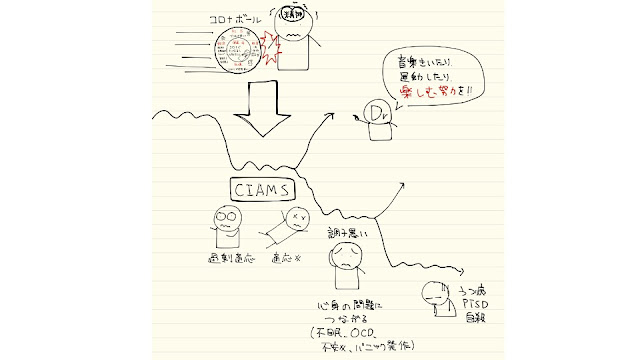 コロナボール
精神
音楽きいたり
運動したり
楽しむ努力を!!
Dr
CIAMS
過剰適応
適応×
調子悪い
心身の問題に
つながる
(不眠、OCD、
不安↗、パニック発作)
うつ病
PTSD
自殺